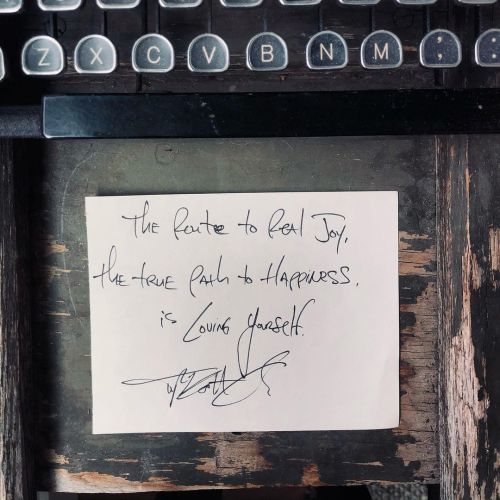 Z X C V B N M ;
:
The Route to Real Joy,
the true Path to Happiness,
is Loving Yourself.